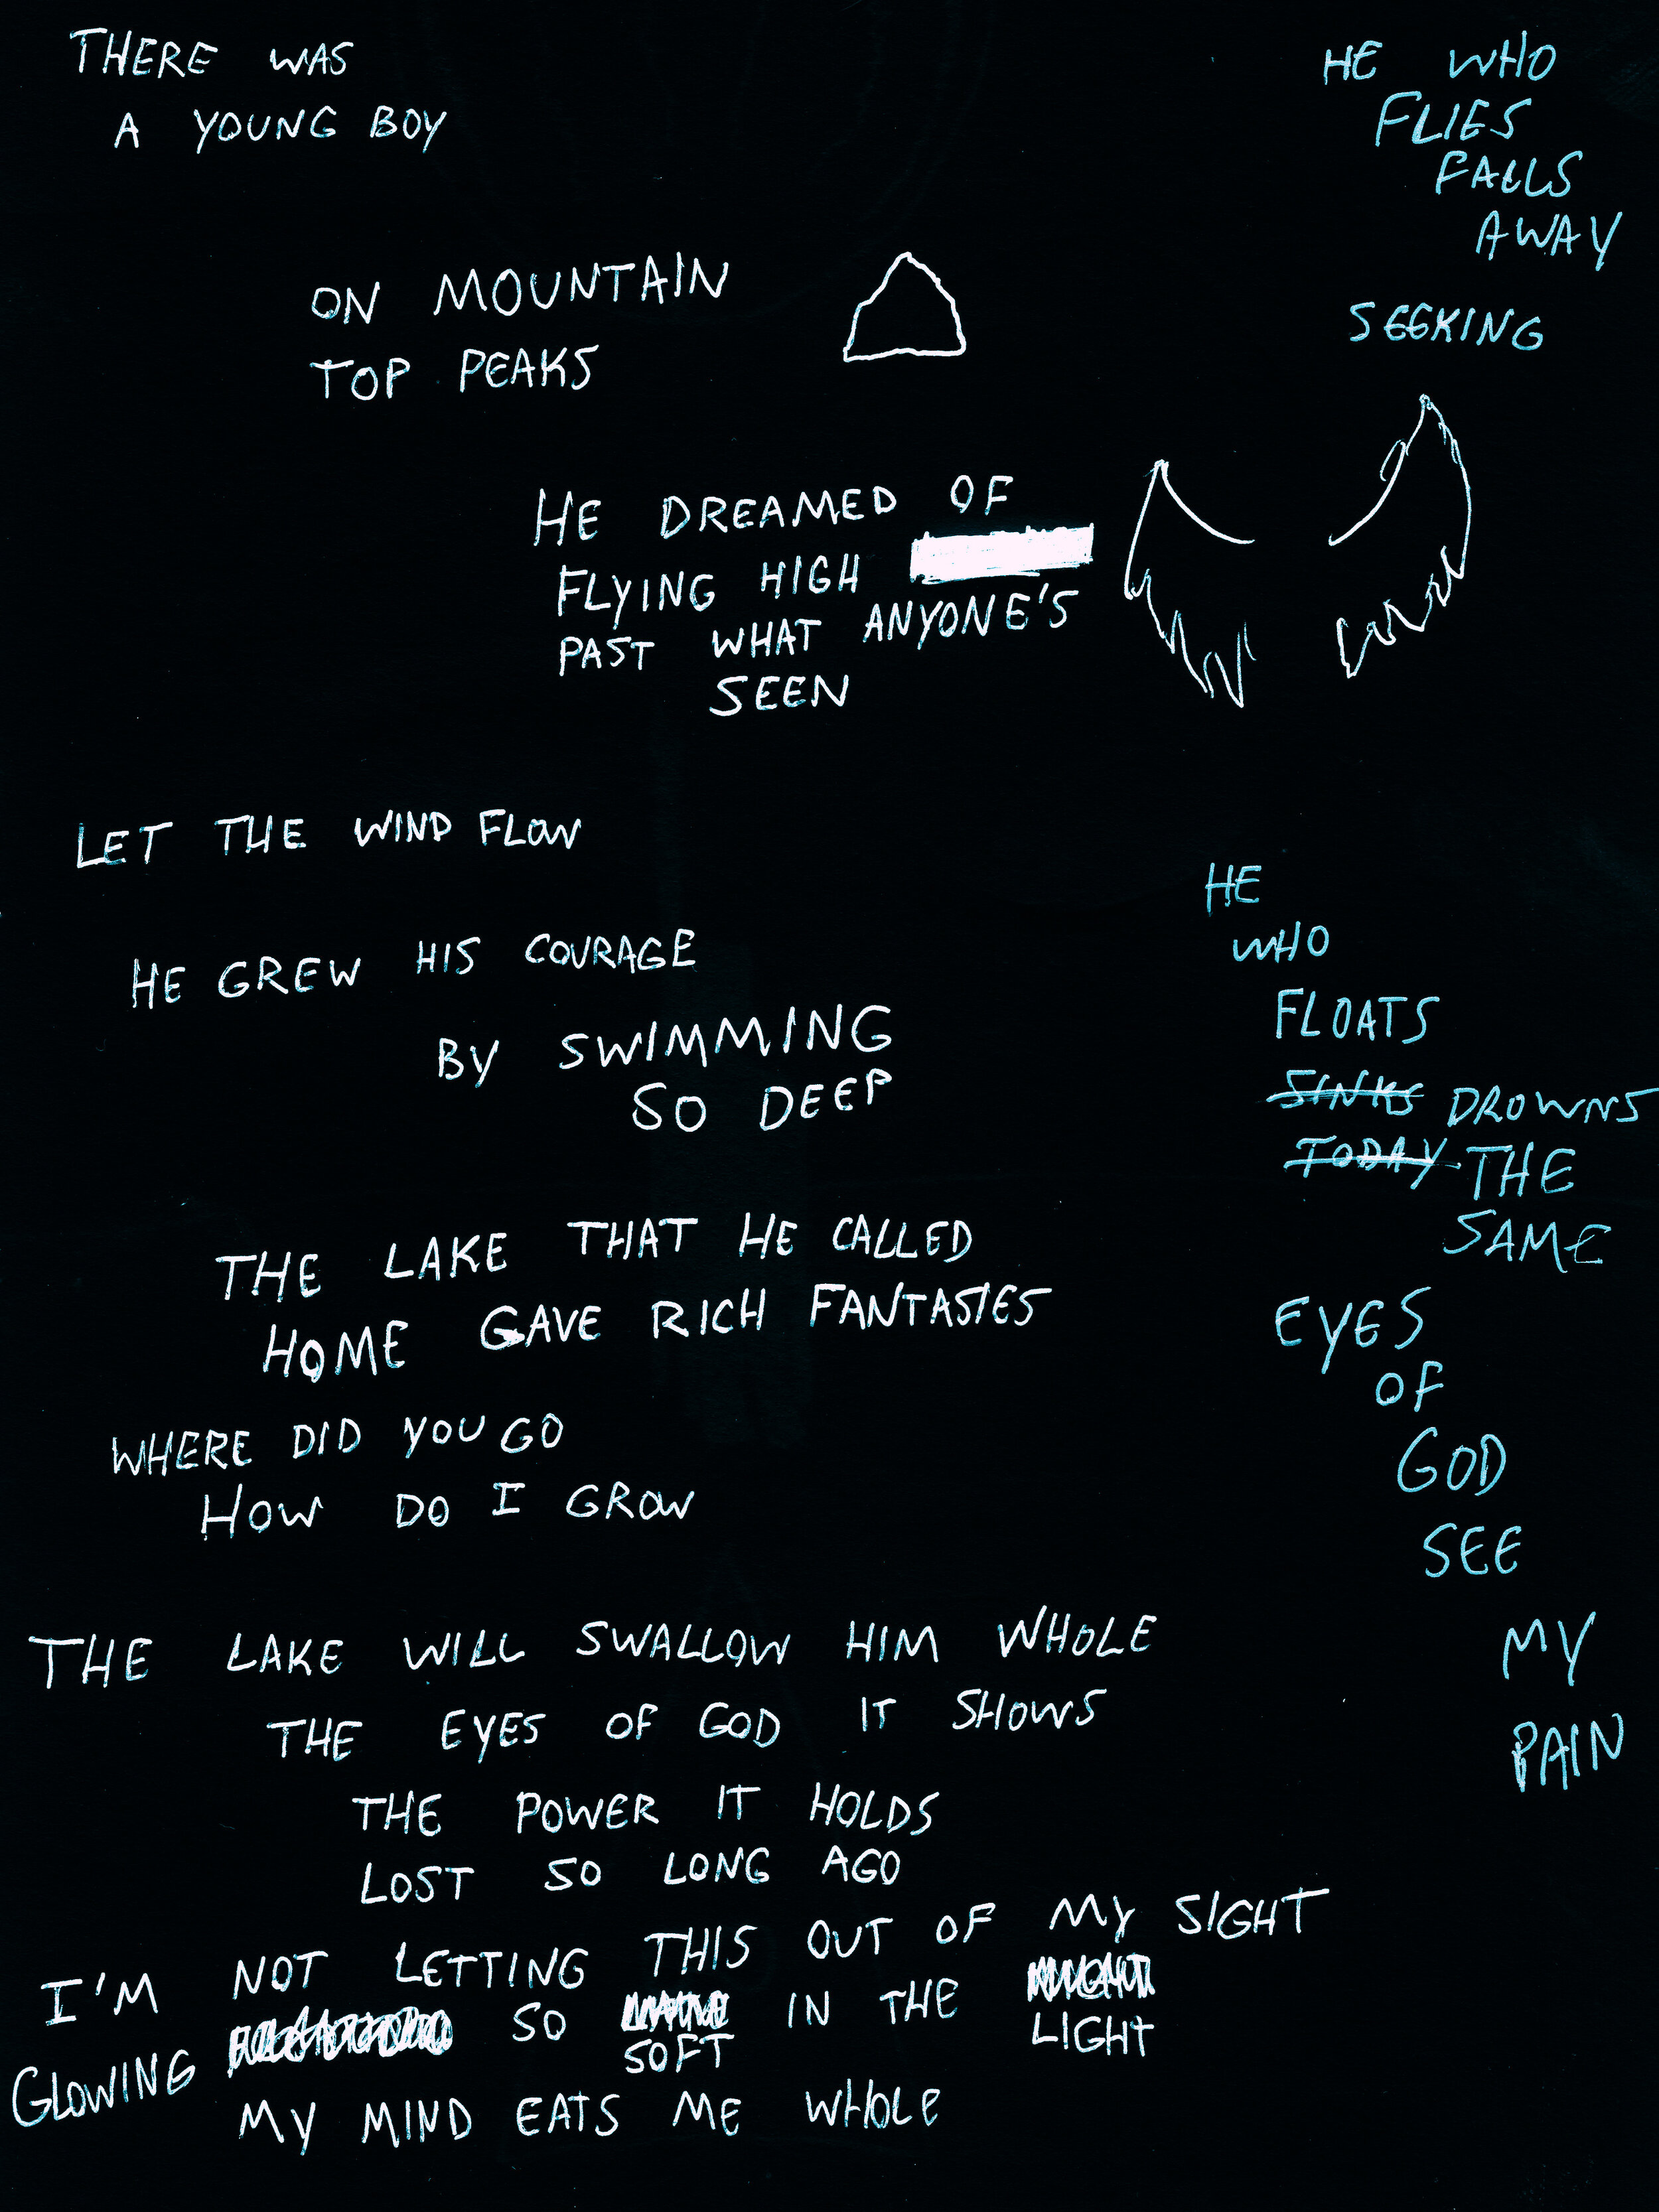 THERE WAS
A YOUNG BOY
ON MOUNTAIN
TOP PEAKS
HE DREAMED OF
FLYING HIGH
PAST WHAT ANYONE'S
SEEN
LET THE WIND FLOW
HE GREW HIS COURAGE
BY SWIMMING
SO DEEP
THE LAKE THAT HE CALLED
HOME GAVE RICH FANTASIES
WHERE DID YOU GO
HOW DO I GROW
THE LAKE WILL SWALLOW HIM WHOLE
THE EYES OF GOD IT SHOWS
THE POWER IT HOLDS
LOST SO LONG AGO
I'M NOT LETTING THIS OUT OF MY SIGHT
GLOWING SO IN THE
SOFT LIGHT
MY MIND EATS ME WHOLE
HE WHO
FLIES
FALLS
AWAY
SEEKING
HE
WHO
FLOATS
SINKS DROWNS
TODAY THE
SAME
EYES
OF
GOD
SEE
MY
PAIN